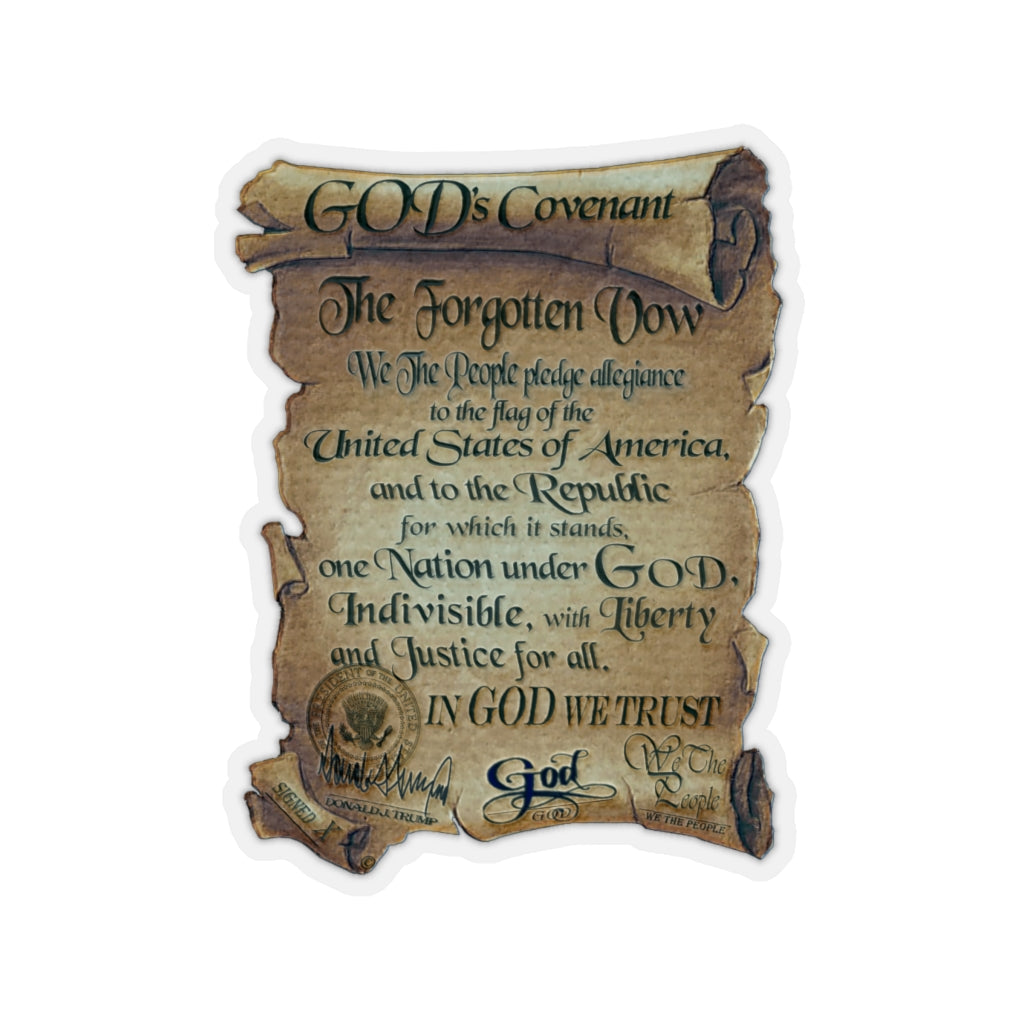 GOD's Covenant
The Forgotten Vow
We The People pledge allegiance
to the flag of the
United States of America,
and to the Republic
for which it stands,
one Nation under GOD,
Indivisible, with Liberty
and Justice for all.
PRESIDENT OF THE UNITED
IN GOD WE TRUST
SIGNED X
DONALD J. TRUMP
God
GOD
We The
People
WE THE PEOPLE
©